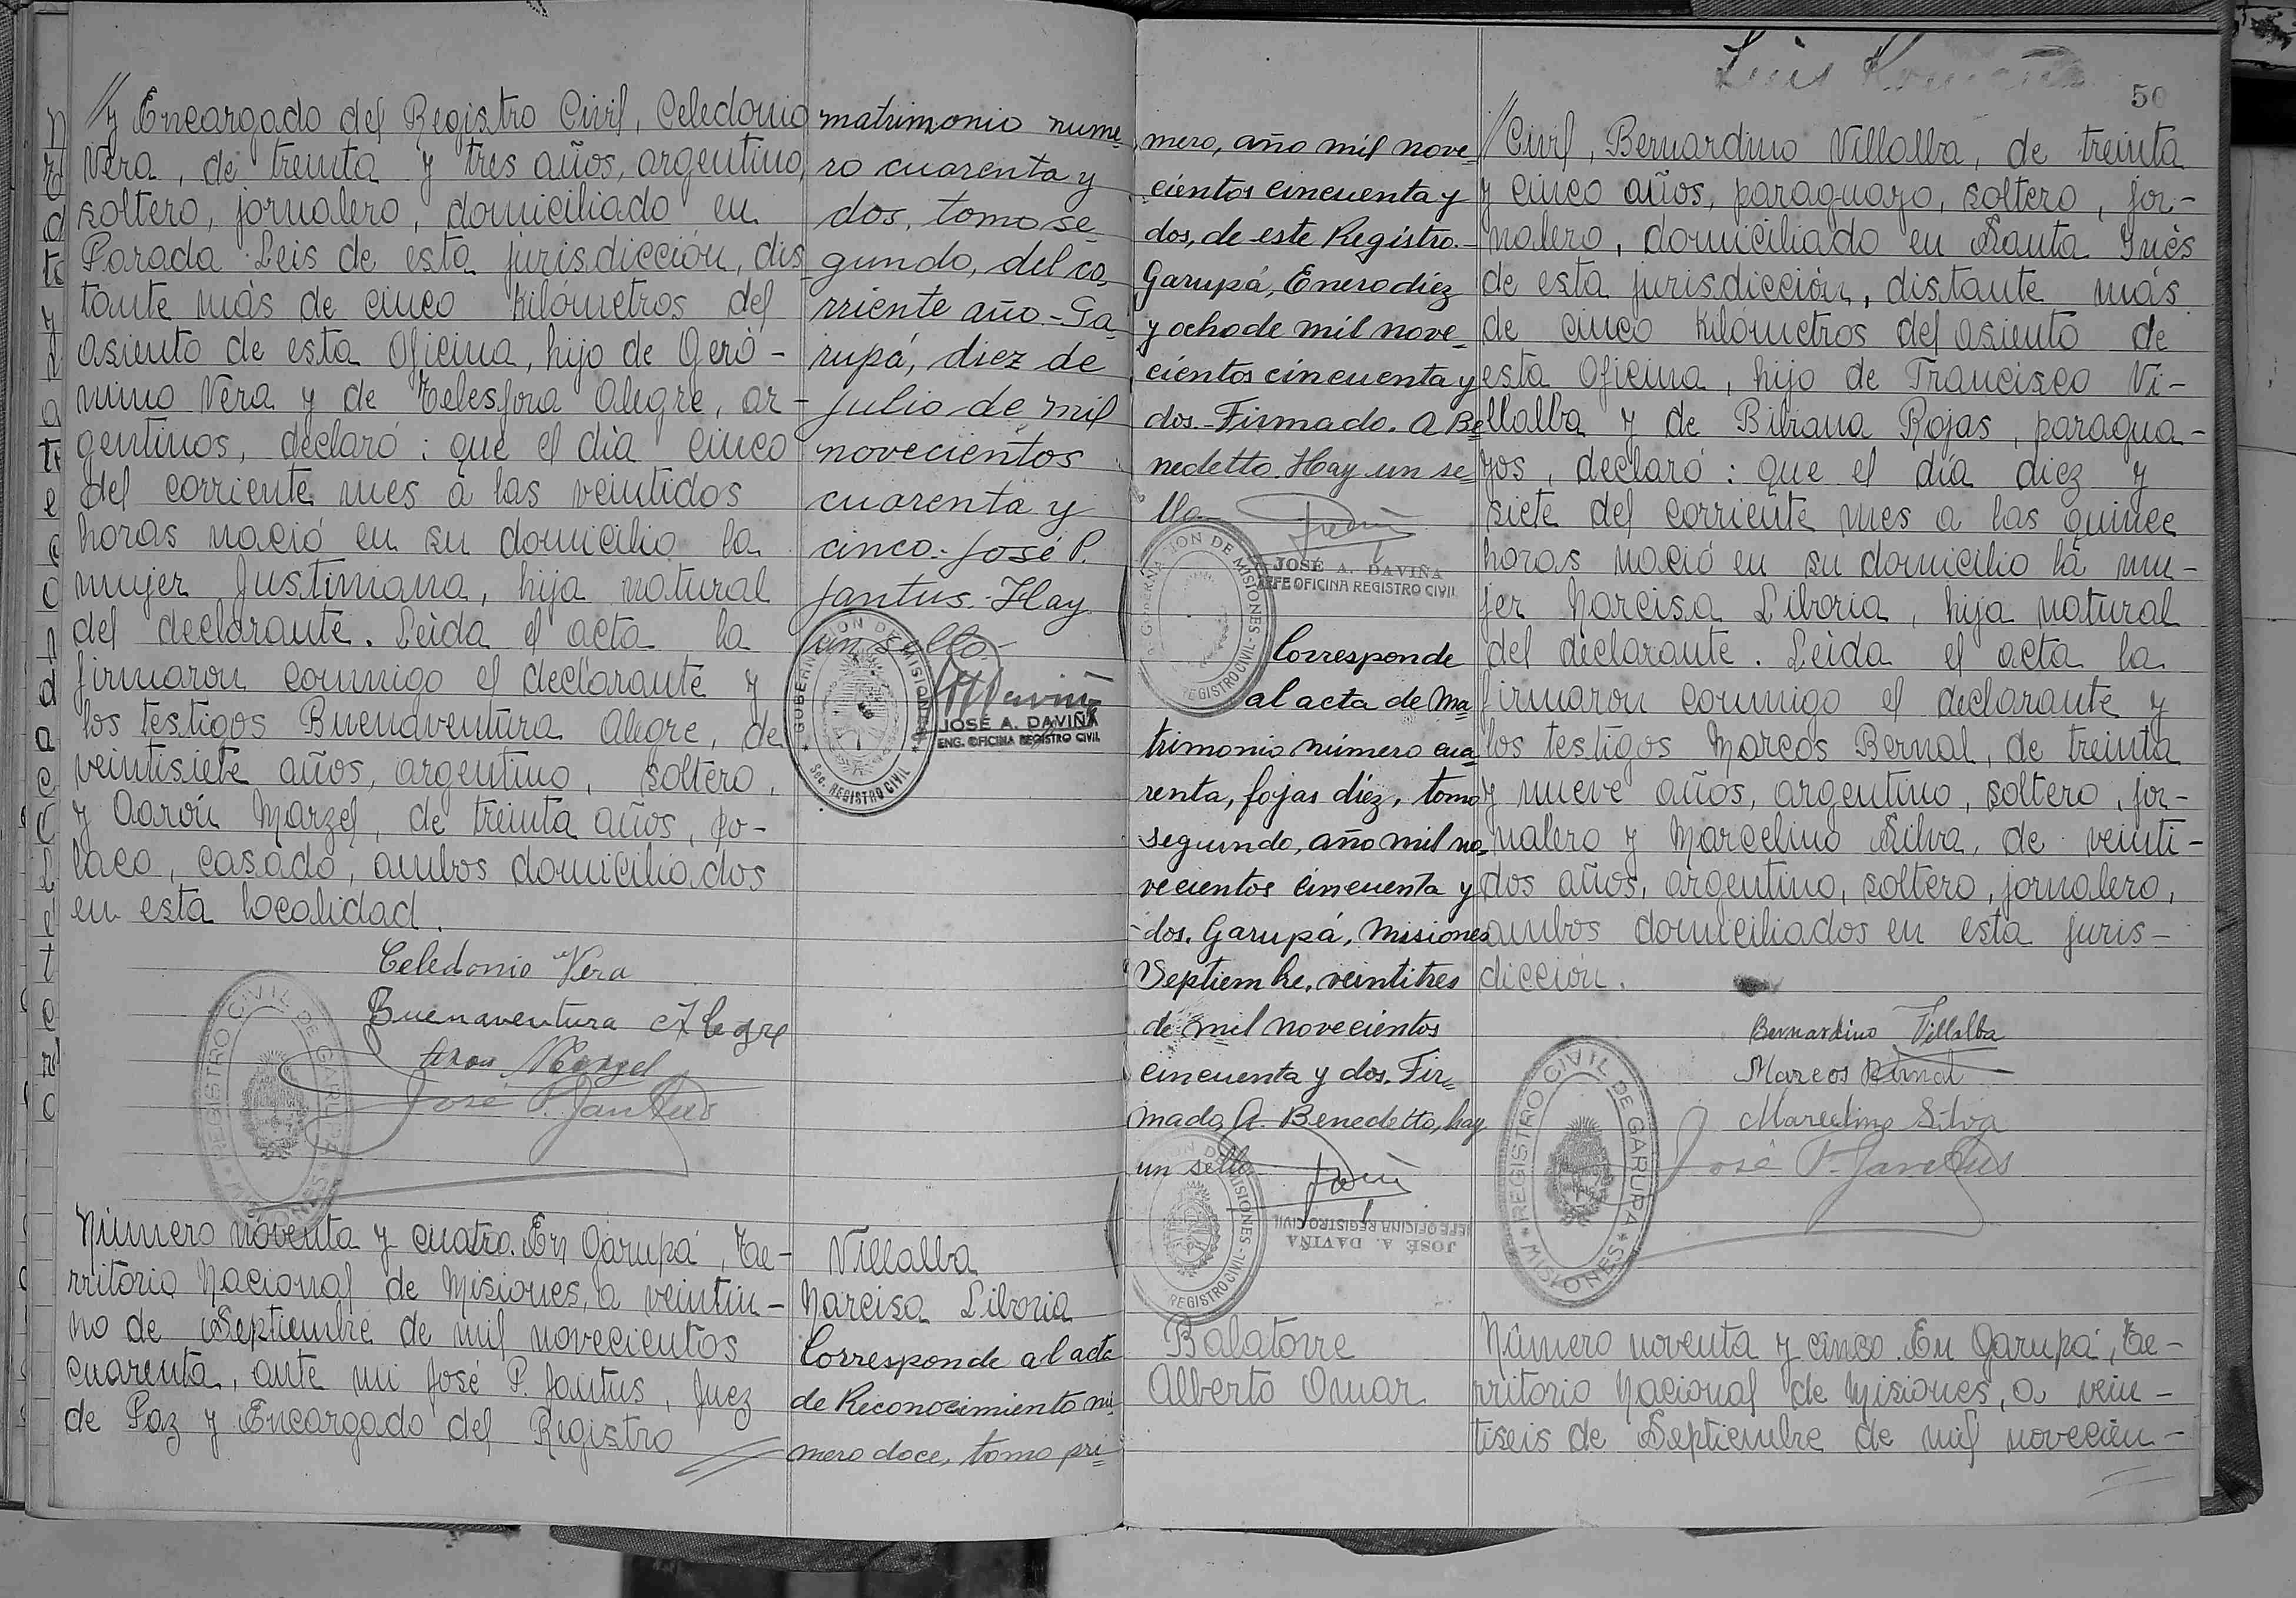 // y Encargado del Registro Civil, Celedonio
Vera, de treinta y tres años, argentino,
soltero, jornalero, domiciliado en
Parada Leis de esta jurisdicción, dis
tante más de cinco kilómetros del
asiento de esta Oficina, hijo de Geró-
nimo Vera y de Telesfora Alegre, ar-
gentinos, declaró: que el día cinco
del corriente mes a las veintidos
horas nació en su domicilio la
mujer Justiniana, hija natural
del declarante. Leída el acta la
firmaron conmigo el declarante y
los testigos Buenaventura Alegre, de
veintisiete años, argentino, soltero,
y Aarón Marzel, de treinta años, po-
laco, casado, ambos domiciliados
en esta localidad.
Celedonio Vera
Buenaventura Alegre
José P. Jantus
REGISTRO CIVIL DE GARUPA
MISIONES
Número noventa y cuatro. En Garupá, Te-
rritorio Nacional de Misiones, a veintiu-
no de Septiembre de mil novecientos
cuarenta, ante mi José P. Jantus, Juez
de Paz y Encargado del Registro //
matrimonio nume-
ro cuarenta y
dos, tomo se-
gundo, del co-
rriente año.- Ga-
rupá, diez de
julio de mil
novecientos
cuarenta y
cinco.- José P.
Jantus.- Hay
un sello.
GOBERNACION DE MISIONES
Sec. REGISTRO CIVIL
JOSÉ A. DAVIÑA
ENC. OFICINA REGISTRO CIVIL
Villalba
Narcisa Liboria
Corresponde al acta
de Reconocimiento nú-
mero doce, tomo pri-
mero, año mil nove-
cientos cincuenta y
dos, de este Registro.-
Garupá, Enero diéz
y ocho de mil nove-
cientos cincuenta y
dos.- Firmado. A Be-
nedetto. Hay un se-
llo
GOBERNACION DE MISIONES - REGISTRO CIVIL
JOSÉ A. DAVIÑA
JEFE OFICINA REGISTRO CIVIL
Corresponde
al acta de Ma-
trimonio número cua-
renta, fojas diéz, tomo
segundo, año mil no-
vecientos cincuenta y
dos. Garupá, Misiones
Septiembre, veintitres
de mil novecientos
cincuenta y dos. Fir-
mado, A. Benedetto, hay
un sello
MISIONES - REGISTRO CIVIL
JOSÉ A. DAVIÑA
JEFE OFICINA REGISTRO CIVIL
Balatorre
Alberto Omar
Luis
50
// Civil, Bernardino Villalba, de treinta
y cinco años, paraguayo, soltero, jor-
nalero, domiciliado en Santa Inés
de esta jurisdicción, distante más
de cinco kilómetros del asiento de
esta Oficina, hijo de Francisco Vi-
llalba y de Bibiana Rojas, paragua-
yos, declaró: que el día diez y
siete del corriente mes a las quince
horas nació en su domicilio la mu-
jer Narcisa Liboria, hija natural
del declarante. Leída el acta la
firmaron conmigo el declarante y
los testigos Marcos Bernal, de treinta
y nueve años, argentino, soltero, jor-
nalero y Marcelino Silva, de veinti-
dos años, argentino, soltero, jornalero,
ambos domiciliados en esta juris-
dicción.
Bernardino Villalba
Marcos Bernal
Marcelino Silva
José P. Jantus
REGISTRO CIVIL DE GARUPA
MISIONES
Número noventa y cinco. En Garupá, Te-
rritorio Nacional de Misiones, a vein-
tiseis de Septiembre de mil novecien-